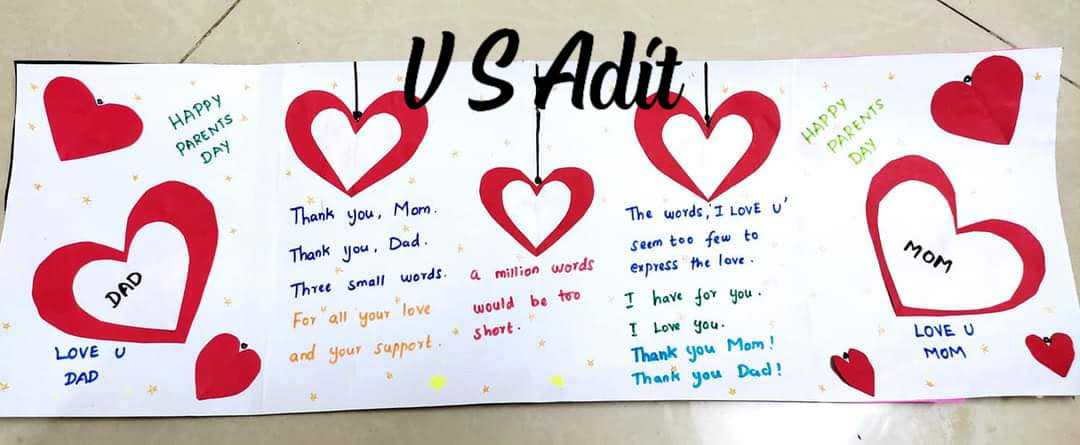 V S Adit
HAPPY
PARENTS
DAY
DAD
LOVE U
DAD
Thank you, Mom.
Thank you, Dad.
Three small words.
For "all your love
and your support.
a million words
would be too
short.
The words, 'I LOVE U'
seem too few to
express the love.
I have for you.
I Love you.
Thank you Mom!
Thank you Dad!
HAPPY
PARENTS
DAY
MOM
LOVE U
MOM